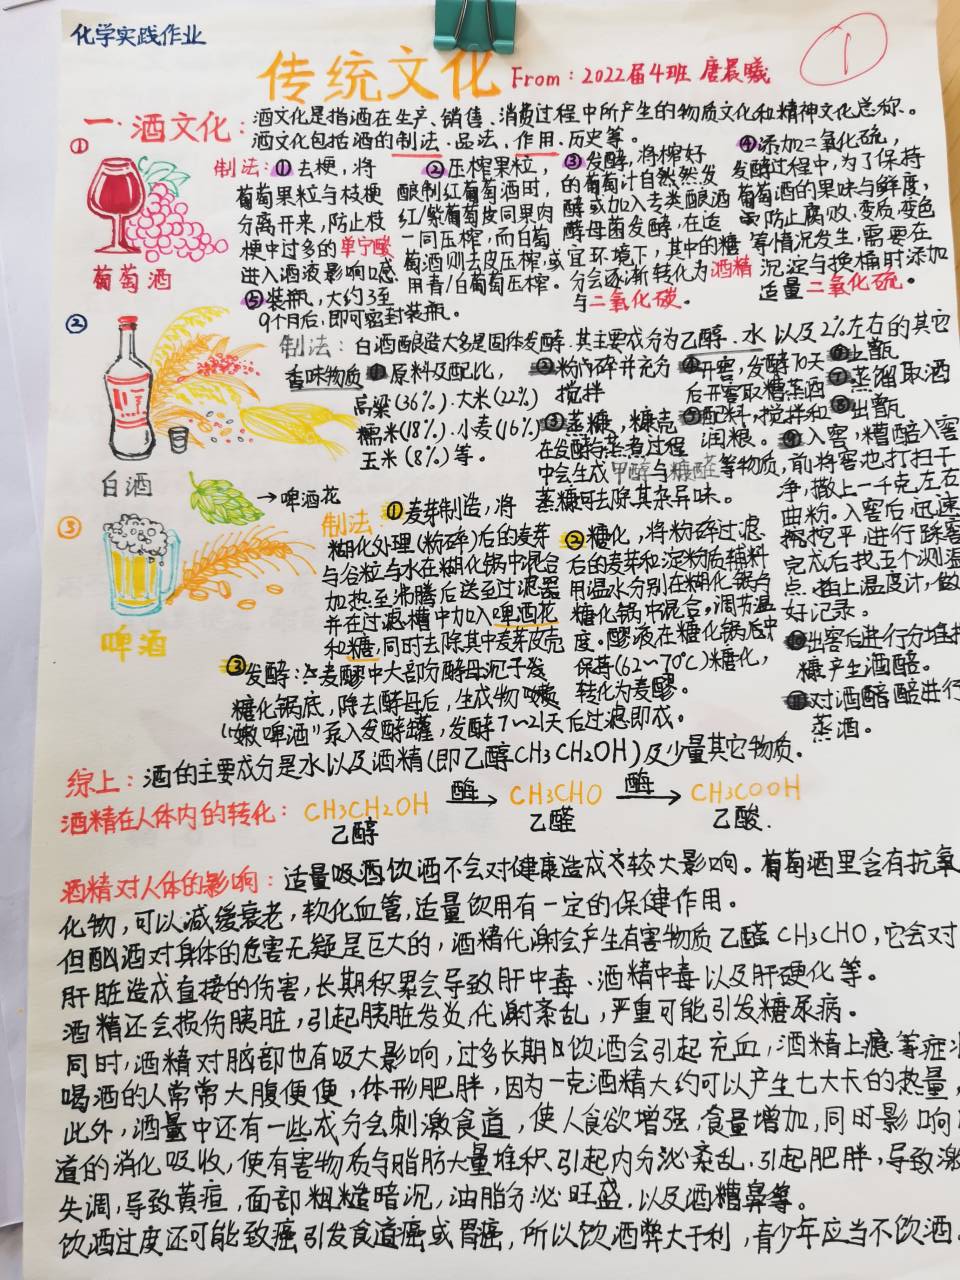 化学实践作业
传统文化 From：2022届4班 唐晨曦
1
一.酒文化：酒文化是指酒在生产、销售、消费过程中所产生的物质文化和精神文化总称。
酒文化包括酒的制法、品法、作用、历史等。
①
葡萄酒
制法：①去梗，将
葡萄果粒与枝梗
分离开来，防止枝
梗中过多的单宁酸
进入酒液影响口感
②压榨果粒，
酿制红葡萄酒时，
红/紫葡萄皮同果肉
一同压榨，而白葡
萄酒则去皮压榨，或
用青/白葡萄压榨。
③发酵，将榨好
的葡萄汁自然然发
酵或加入去类酿酒
酵母菌发酵，在适
宜环境下，其中的糖
分会逐渐转化为酒精
与二氧化碳。
④添加二氧化硫，
发酵过程中，为了保持
葡萄酒的果味与鲜度，
防止腐败、变质、变色
等情况发生，需要在
沉淀与换桶时添加
适量二氧化硫。
⑤装瓶，大约3至
9个月后，即可密封装瓶。
②
白酒
制法：白酒酿造大多是固体发酵，其主要成分为乙醇、水以及2%左右的其它
香味物质
①原料及配比，
高粱(36%)、大米(22%)
糯米(18%)、小麦(16%)
玉米(8%)等。
②粉碎并充分
搅拌
③蒸糠，糠壳
在发酵与蒸煮过程
中会生成甲醇与糠醛等物质，
蒸糠可去除其杂异味。
④开窖，发酵70天
后开窖取糟蒸酒
⑤配料，搅拌和
润粮。
⑥上甑
⑦蒸馏取酒
⑧出甑
⑨入窖，糟醅入窖
前将窖池打扫干
净，撒上一千克左右
曲粉。入窖后迅速
挖平，进行踩窖
完成后找五个测温
点，插上温度计，做
好记录。
⑩出窖后进行分堆
糠产生酒醅。
⑪对酒醅醅进行
蒸酒。
③
→啤酒花
啤酒
制法：
①麦芽制造，将
糊化处理(粉碎)后的麦芽
与谷粒与水在糊化锅中混合
加热至沸腾后送至过滤器
并在过滤槽中加入啤酒花
和糖，同时去除其中麦芽皮壳
②糖化，将粉碎过滤
后的麦芽和淀粉质辅料
用温水分别在糊化锅与
糖化锅中混合，调节温
度。醪液在糖化锅后中
保持(62～70℃)糖化，
转化为麦醪。
③发酵：麦醪中大部份酵母沉于发
糖化锅底，除去酵母后，生成物
“嫩啤酒”泵入发酵罐，发酵7～21天后过滤即成。
综上：酒的主要成分是水以及酒精(即乙醇CH3CH2OH)及少量其它物质。
酒精在人体内的转化：CH3CH2OH 酶→ CH3CHO 酶→ CH3COOH
乙醇 乙醛 乙酸.
酒精对人体的影响：适量吸酒饮酒不会对健康造成较大影响。葡萄酒里含有抗氧
化物，可以减缓衰老，软化血管，适量饮用有一定的保健作用。
但酗酒对身体的危害无疑是巨大的，酒精代谢会产生有害物质乙醛CH3CHO，它会对
肝脏造成直接的伤害，长期积累会导致肝中毒、酒精中毒以及肝硬化等。
酒精还会损伤胰脏，引起胰脏发炎，代谢紊乱，严重可能引发糖尿病。
同时，酒精对脑部也有吸大影响，过多长期饮酒会引起充血，酒精上瘾等症
喝酒的人常常大腹便便，体形肥胖，因为一克酒精大约可以产生七大卡的热量，
此外，酒量中还有一些成分会刺激食道，使人食欲增强，食量增加，同时影响
道的消化吸收，使有害物质与脂肪大量堆积，引起内分泌紊乱，引起肥胖，导致激
失调，导致黄疸，面部粗糙暗沉，油脂分泌旺盛，以及酒糟鼻等。
饮酒过度还可能致癌，引发食道癌或胃癌，所以饮酒弊大于利，青少年应当不饮酒